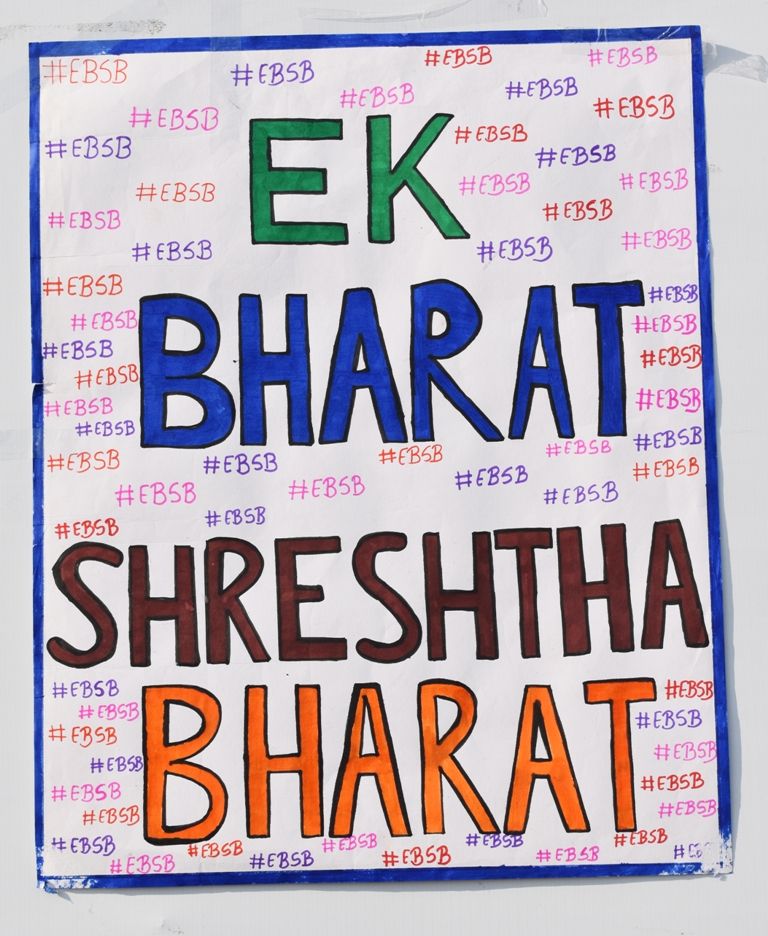 #EBSB #EBSB #EBSB #EBSB
#EBSB #EBSB #EBSB #EBSB
#EBSB #EBSB #EBSB
EK
#EBSB #EBSB #EBSB
#EBSB #EBSB
#EBSB #EBSB #EBSB
#EBSB #EBSB
#EBSB #EBSB
#EBSB #EBSB
#EBSB #EBSB
BHARAT
#EBSB #EBSB
#EBSB #EBSB
#EBSB #EBSB #EBSB #EBSB
#EBSB #EBSB #EBSB
#EBSB #EBSB #EBSB
#EBSB #EBSB
SHRESHTHA
#EBSB #EBSB
#EBSB #EBSB
#EBSB #EBSB
BHARAT
#EBSB #EBSB
#EBSB #EBSB
#EBSB
#EBSB #EBSB #EBSB #EBSB #EBSB
#EBSB #EBSB #EBSB #EBSB